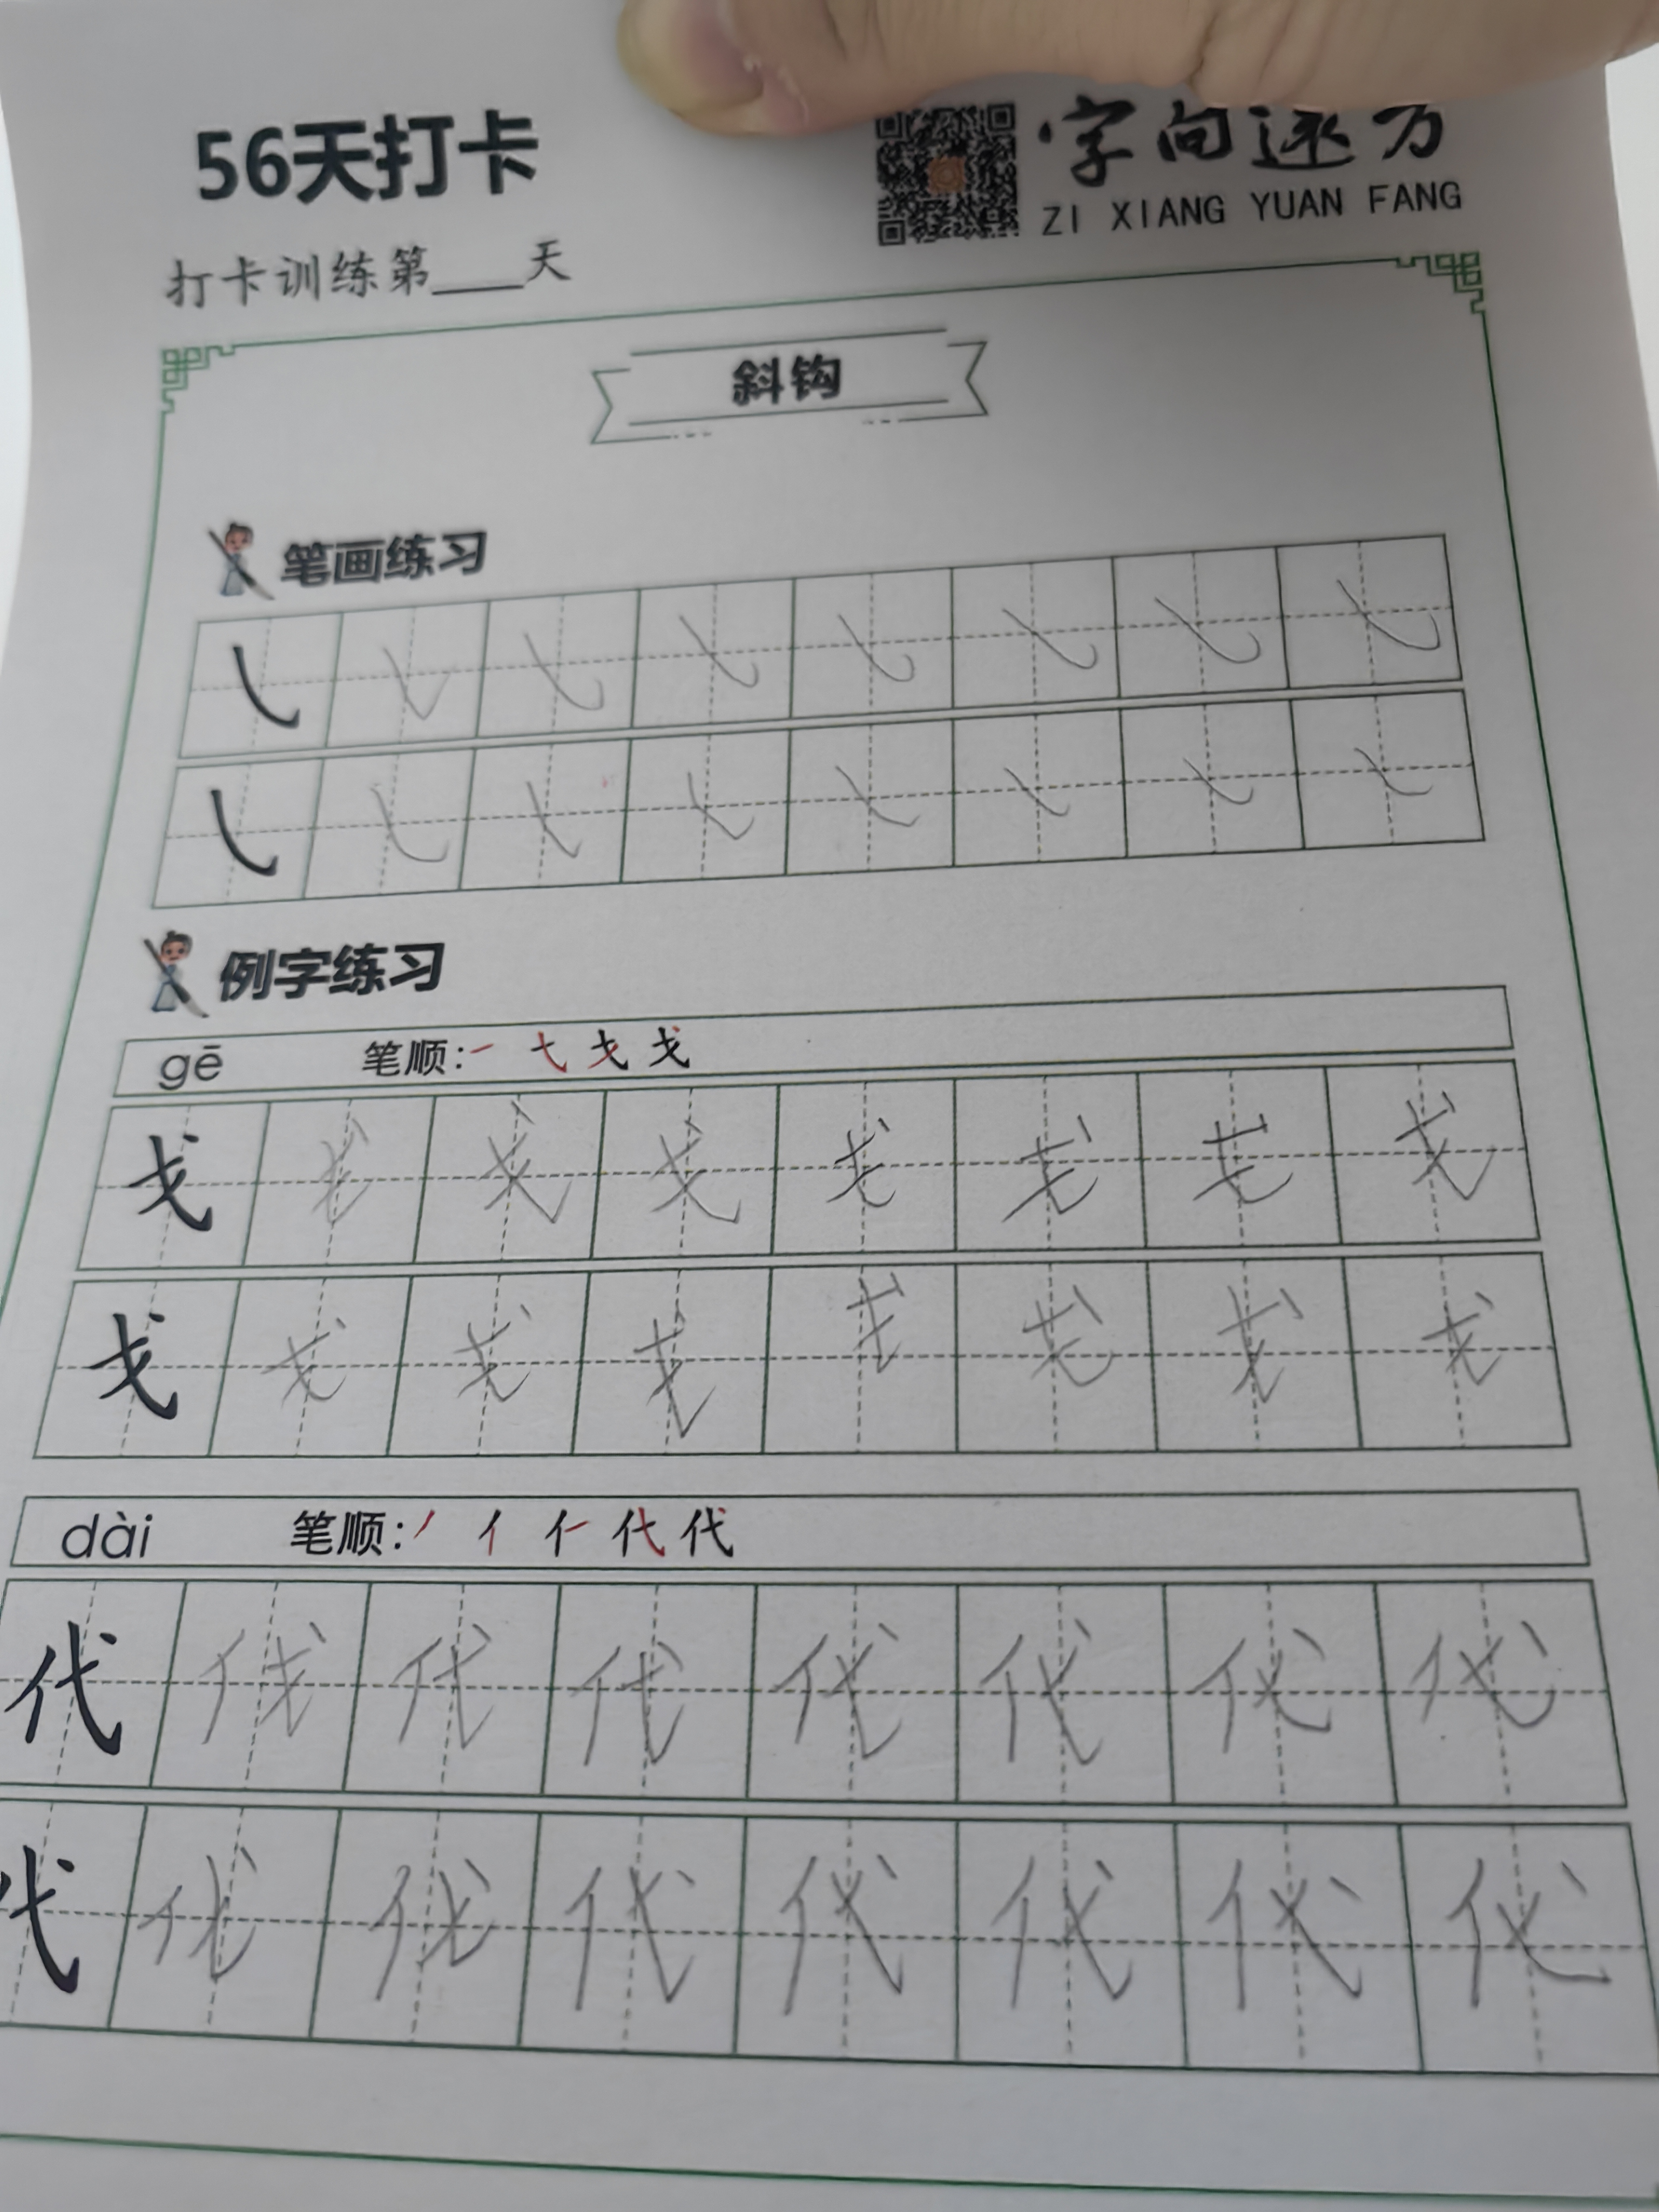 56天打卡
字向远方
ZI XIANG YUAN FANG
打卡训练第___天
斜钩
笔画练习
例字练习
gē 笔顺:
戈 戈 戈 戈 戈 戈 戈 戈
戈 戈 戈 戈 戈 戈 戈 戈
dài 笔顺: 亻 代
代 代 代 代 代 代 代 代
代 代 代 代 代 代 代 代